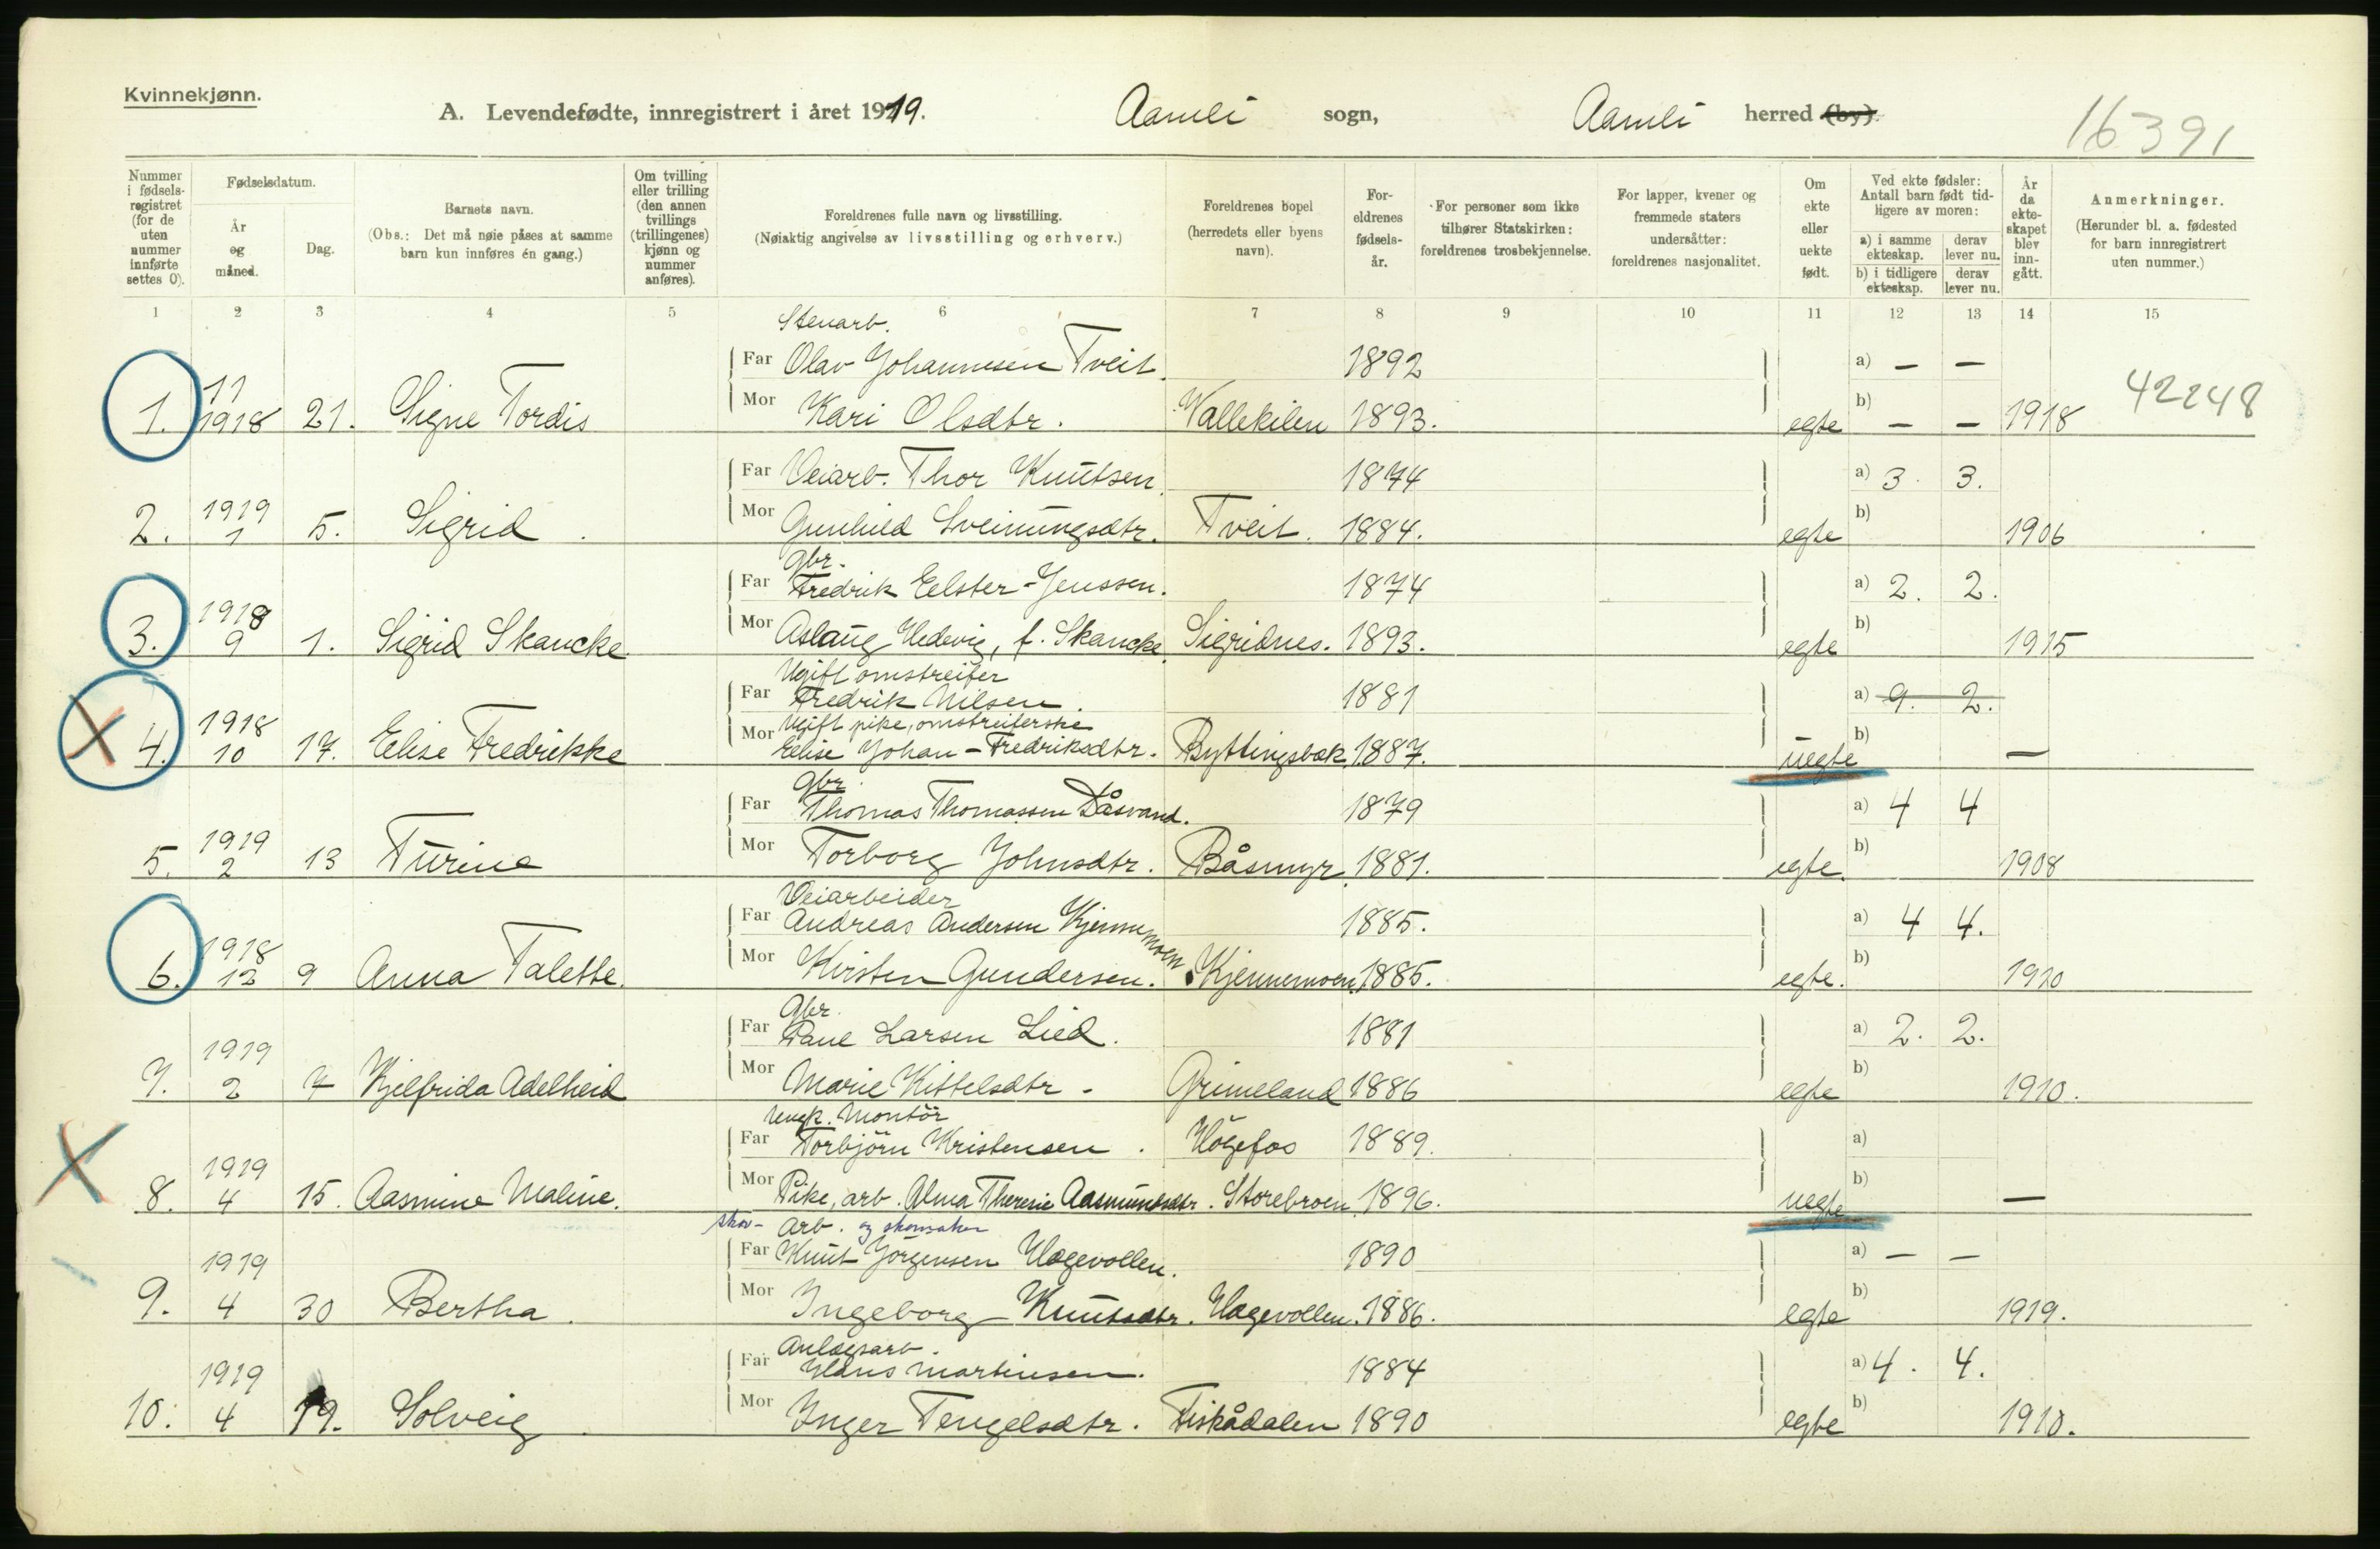 Kvinnekjønn.
A. Levendefødte, innregistrert i året 1919. Aamli sogn, Aamli herred (by).
16391
Nummer i fødselsregistret (for de uten nummer innførte settes 0).
Fødselsdatum.
År og måned.
Dag.
Barnets navn.
(Obs.: Det må nøie påses at samme barn kun innføres én gang.)
Om tvilling eller trilling (den annen tvillings (trillingenes) kjønn og nummer anføres).
Foreldrenes fulle navn og livsstilling.
(Nøiaktig angivelse av livsstilling og erhverv.)
Foreldrenes bopel (herredets eller byens navn).
Foreldrenes fødselsår.
For personer som ikke tilhører Statskirken: foreldrenes trosbekjennelse.
For lapper, kvener og fremmede staters undersåtter: foreldrenes nasjonalitet.
Om ekte eller uekte født.
Ved ekte fødsler: Antall barn født tidligere av moren:
a) i samme ekteskap. derav lever nu.
b) i tidligere ekteskap. derav lever nu.
År da ekteskapet blev inngått.
Anmerkninger.
(Herunder bl. a. fødested for barn innregistrert uten nummer.)
1 2 3 4 5 6 7 8 9 10 11 12 13 14 15
Stenarb.
Far Olav Johannesen Tveit. 1892 a) — —
42248
11
1. 1918 21. Signe Tordis Mor Kari Olsdtr. Vallekilen 1893. egte b) — — 1918
Far Veiarb. Thor Knutsen. 1874 a) 3. 3.
1919
2. 1 5. Sigrid. Mor Gunhild Sveinungsdtr. Tveit. 1884. egte b) 1906
Gbr.
Far Fredrik Eelster-Jenssen. 1874 a) 2. 2.
1918
3. 9 1. Sigrid Skancke Mor Aslaug Hedevig, f. Skancke. Sigridnes. 1893. egte b) 1915
Ugift omstreifer
Far Fredrik Nilsen. 1881 a) 9. 2.
1918
Ugift pike, omstreiferske
4. 10 17. Eelise Fredrikke Mor Eelise Johan-Fredriksdtr. Byttingsbæk 1887. uegte b) —
Gbr.
Far Thomas Thomassen Dåsvand. 1879 a) 4 4
1919
5. 2 13 Turine Mor Torborg Johnsdtr. Båsmyr 1881. egte. b) 1908
Veiarbeider
Far Andreas Andersen Kjennemoen 1885. a) 4 4.
1918
6. 12 9 Anna Talette. Mor Kristen Gundersen. Kjennemoen 1885. egte. b) 1910
Gbr.
Far Paul Larsen Lied. 1881 a) 2. 2.
1919
7. 2 7 Kjelfrida Adelheid Mor Marie Kittelsdtr - Grimeland 1886 egte b) 1910.
Ungk. Montör
Far Torbjörn Kristensen. Högefos 1889. a)
1919
8. 4 15. Aasmine Maline. Mor Pike, arb. Alma Theresie Aasmundsdtr. Storebroen 1896. uegte b) —
skov- Arb. og skomaker
Far Knut Jörgensen Hagevollen. 1890 a) — —
1919
9. 4 30 Bertha. Mor Ingeborg Knutsdtr. Hagevollen. 1886. egte b) 1919.
Anlægsarb.
Far Hans Martinsen. 1884 a) 4. 4.
1919
10. 4 19. Solveig. Mor Inger Tengelsdtr. Fiskådalen 1890 egte b) 1910.